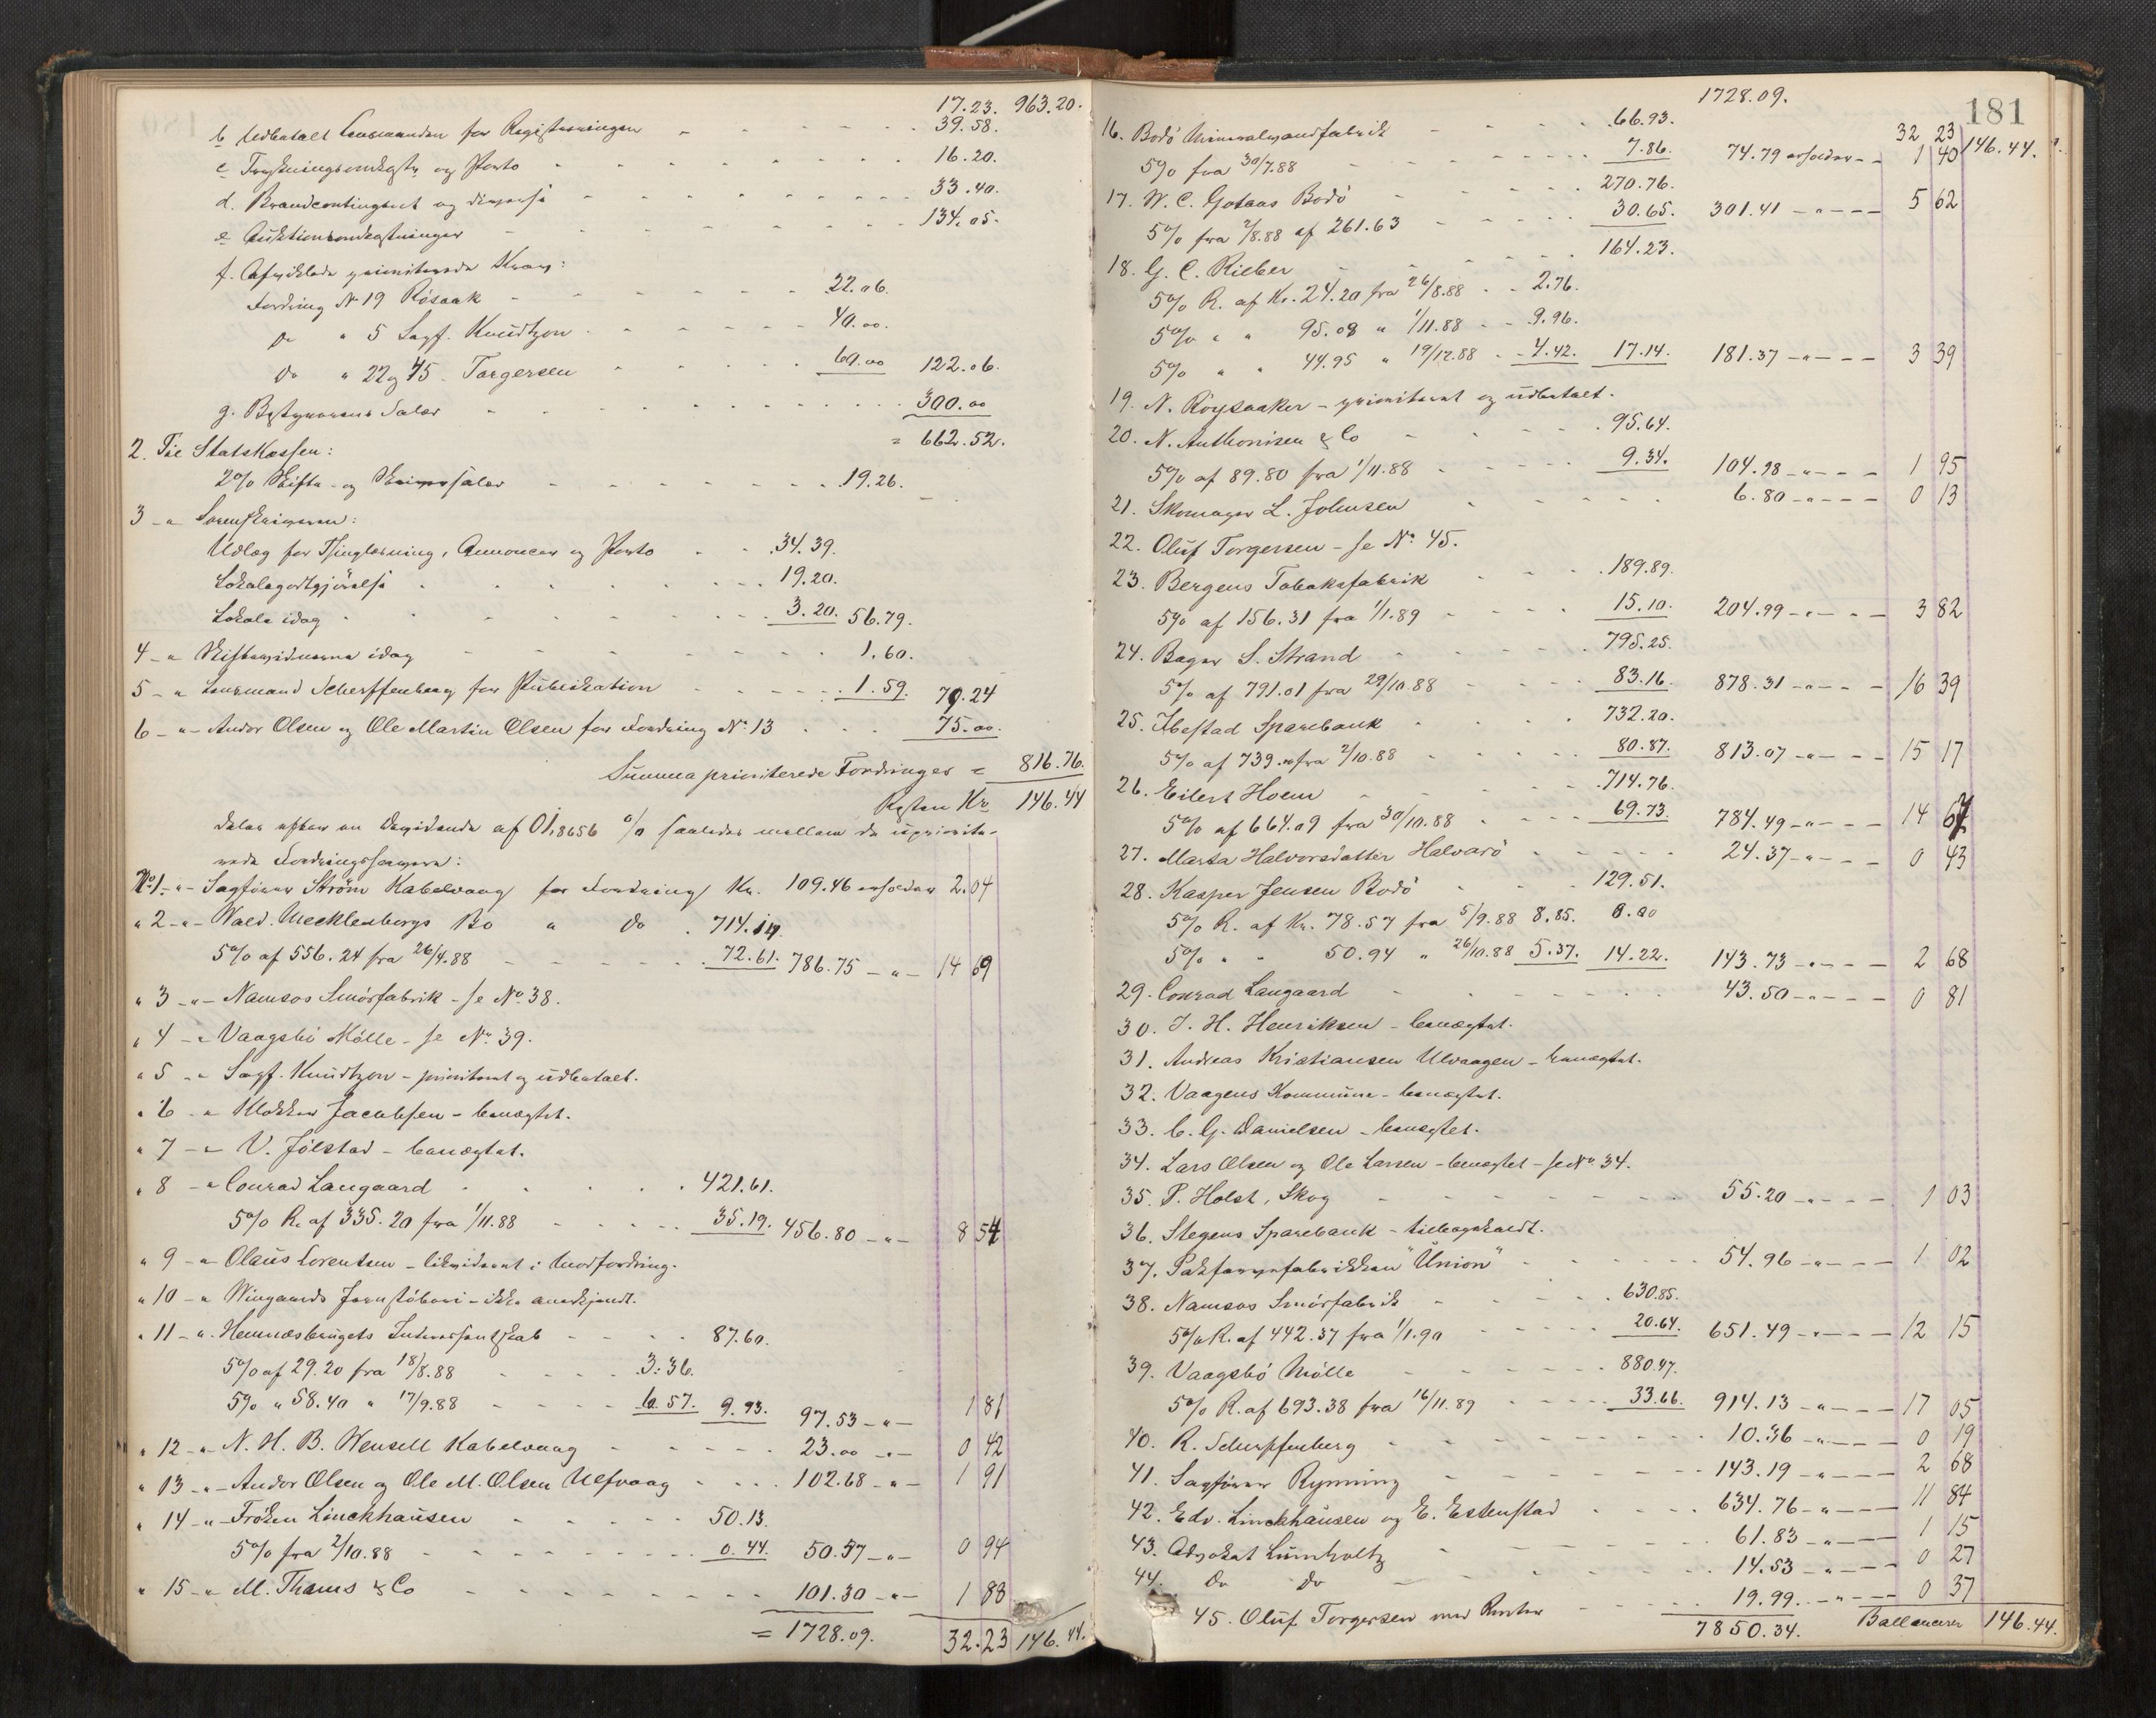 17.23. 963.20.
b Udbetalt Lensmanden for Registreringen - - - 39.58.
c Trykningsomkostn. og Porto - - - 16.20.
d. Brandcontingent og diverse - - - 33.40.
e Auktionsomkostninger - - - 134.05.
f. Afviklede prioriterede Krav:
Fordring No 19 Røsaak - - - 22.06.
Do " 5 Sagf. Knudtzon - - - 40.00.
Do " 22 og 45. Torgersen - - - 60.00 122.06.
g. Bestyrerens Salær - - - 300.00
= 662.52.
2. Til Statskassen:
2% Skifte- og Skriversalær - - - 19.26.
3 - " Sorenskriveren:
Udlæg for Thinglæsning, Annoncer og Porto - - 34.39.
Lokalegodtgjörelse - - - 19.20.
Lokale idag - - - 3.20. 56.79.
4 - " Skiftevidnerne idag - - - 1.60.
5 - " Lensmand Scherffenberg for Publikation - - - 1.59. 79.24
6 - " - Andor Olsen og Ole Martin Olsen for Fordring No 13 - - - 75.00.
Summa prioriterede Fordringer = 816.76.
Resten Kr. 146.44
deles efter en Dividende af 01,8656 % saaledes mellem de upriorite-
rede Fordringshavere:
No 1 - " - Sagförer Ström Kabelvaag for Fordring Kr. 109.46 erholder 2.04
" 2 - " - Wald. Mecklenborgs Bo " Do . 714.14.
5% af 556.24 fra 26/4.88 - - - 72.61. 786.75 - " - 14 69
" 3 - " - Namsos Smörfabrik - se No 38.
" 4 - " Vaagsbö Mölle - se No. 39.
" 5 - " Sagf. Knudtzon - prioriteret og udbetalt.
" 6 - " Klokker Jacobsen - benægtet.
" 7 - " V. Jölstad - benægtet.
" 8 - " Conrad Langaard - - - 421.61.
5% R. af 335.20 fra 1/11.88 - - - 35.19. 456.80 - " - 8 54
" 9 - " Olaus Lorentsen - likvideret i Modfordring.
" 10 - " Wingaards Jernstöberi - ikke anerkjendt.
" 11 - " Hemnæsbrugets Interessentskab - - - 87.60.
5% af 29.20 fra 18/8.88 - - - 3.36.
5% " 58.40 " 17/9.88 - - - 6.57. 9.93. 97.53 - " - 1 81
" 12 - " - N. H. B. Wensell Kabelvaag - - - 23.00 - " - 0 42
" 13 - " - Andor Olsen og Ole M. Olsen Ulfvaag - - - 102.68 - " - 1 91
" 14 - " - Fröken Linckhausen - - - 50.13.
5% fra 2/10.88 - - - 0.44. 50.57 - " - 0 94
" 15 - " M. Thams & Co - - - 101.30 - " - 1 88
= 1728.09. 32.23 146.44.
181
1728.09. 32 23 146.44.
16. Bodö Mineralvandfabrik - - - 66.93.
5% fra 30/7.88 - - - 7.86. 74.79 erholder - - 1 40
17. W. C. Gotaas Bodö - - - 270.76.
5% fra 2/8.88 af 261.63 - - - 30.65. 301.41 - " - - - 5 62
18. G. C. Rieber - - - 164.23.
5% R. af Kr. 24.20 fra 26/8.88 - - 2.76.
5% " " 95.08 " 1/11.88 - - 9.96.
5% " " 44.95 " 19/12.88 - - 4.42. 17.14. 181.37 - " - - - 3 39
19. N. Röysaaker - prioriteret og udbetalt.
20. N. Anthonisen & Co - - - 95.64.
5% af 89.80 fra 1/11.88 - - - 9.34. 104.98 - " - - - 1 95
21. Skomager L. Johnsen - - - 6.80 - " - - - 0 13
22. Oluf Torgersen - se No. 45.
23. Bergens Tobaksfabrik - - - 189.89.
5% af 156.31 fra 1/1.89 - - - 15.10. 204.99 - " - - - 3 82
24. Bager S. Strand - - - 795.25.
5% af 791.01 fra 29/10.88 - - - 83.16. 878.31 - " - - - 16 39
25. Ibestad Sparebank - - - 732.20.
5% af 739.00 fra 2/10.88 - - - 80.87. 813.07 - " - - - 15 17
26. Eilert Hoem - - - 714.76.
5% af 664.09 fra 30/10.88 - - - 69.73. 784.49 - " - - - 14 64
27. Marta Halvorsdatter Halvarö - - - 24.37 - " - - - 0 43
28. Kasper Jensen Bodö - - - 129.51.
5% R. af Kr. 78.57 fra 5/9.88 8.85. 0.00
5% " " 50.94 " 26/10.88 5.37. 14.22. 143.73 - " - - - 2 68
29. Conrad Langaard - - - 43.50 - " - - - 0 81
30. J. H. Henriksen - benægtet.
31. Andreas Kristiansen Ulvaagen - benægtet.
32. Vaagens Kommune - benægtet.
33. C. G. Danielsen - benægtet.
34. Lars Olsen og Ole Larsen - benægtet - se No 34.
35. P. Holst, Skog - - - 55.20 - " - - - 1 03
36. Stegens Sparebank - tilbagekaldt.
37. Sæbefabrikken "Union" - - - 54.96 - " - - - 1 02
38. Namsos Smörfabrik - - - 630.85.
5% R. af 442.37 fra 1/1.90 - - - 20.64. 651.49 - " - - - 12 15
39. Vaagsbö Mölle - - - 880.47.
5% R. af 693.38 fra 16/11.89 - - - 33.66. 914.13 - " - - - 17 05
40. R. Scherffenberg - - - 10.36 - " - - - 0 19
41. Sagförer Rynning - - - 143.19 - " - - - 2 68
42. Edv. Linckhausen og E. Estenstad - - - 634.76 - " - - - 11 84
43. Advokat Lumholtz - - - 61.83 - " - - - 1 15
44. Do Do - - - 14.53 - " - - - 0 27
45. Oluf Torgersen med Renter - - - 19.99. - " - - - 0 37
7850.34. Ballancerer 146.44.